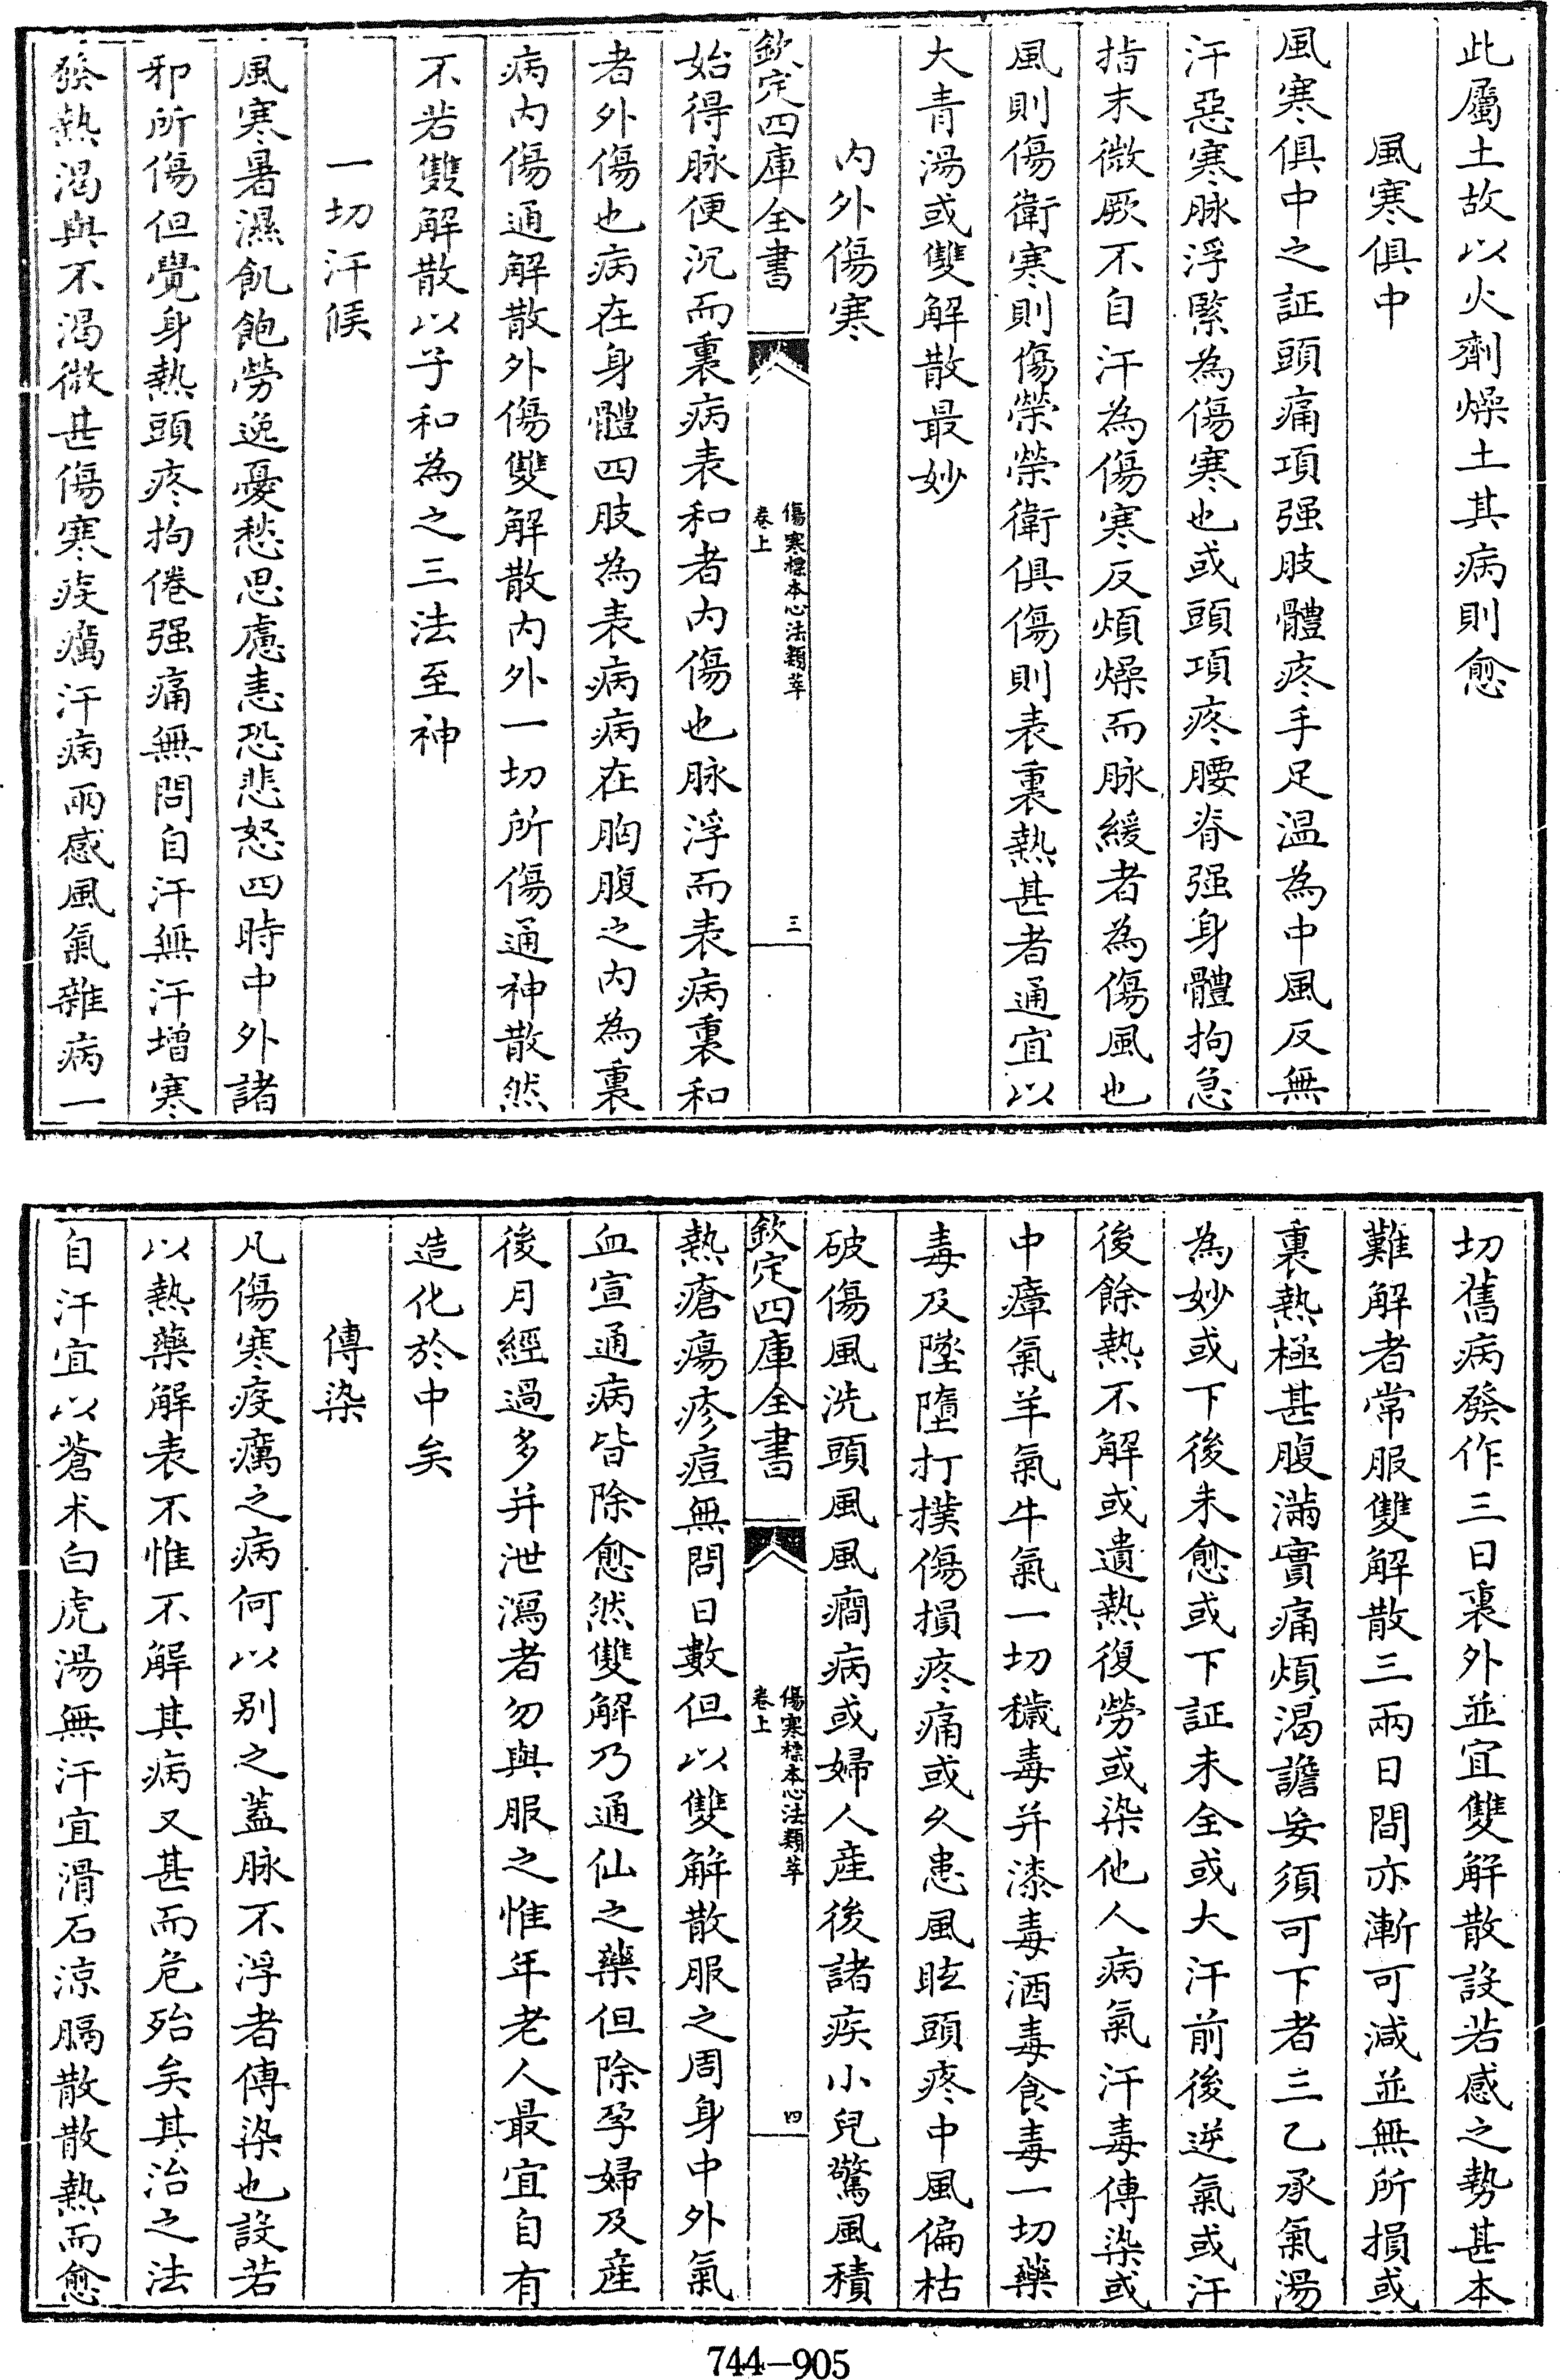 此屬土故以火劑燥土其病則愈
風寒俱中
風寒俱中之証頭痛項强肢體疼手足温為中風反無
汗惡寒脉浮緊為傷寒也或頭項疼腰脊强身體拘急
指末微厥不自汗為傷寒反煩燥而脉緩者為傷風也
風則傷衛寒則傷榮榮衛俱傷則表裏熱甚者通宜以
大青湯或雙解散最妙
内外傷寒
欽定四庫全書
傷寒標本心法類萃
卷上
三
始得脉便沉而裏病表和者内傷也脉浮而表病裏和
者外傷也病在身體四肢為表病病在胸腹之内為裏
病内傷通解散外傷雙解散内外一切所傷通神散然
不若雙解散以子和為之三法至神
一切汗候
風寒暑濕飢飽勞逸憂愁思慮恚恐悲怒四時中外諸
邪所傷但覺身熱頭疼拘倦强痛無問自汗無汗增寒
發熱渴與不渴微甚傷寒疫癘汗病兩感風氣雜病一
切舊病發作三日裏外並宜雙解散設若感之勢甚本
難解者常服雙解散三兩日間亦漸可減並無所損或
裏熱極甚腹滿實痛煩渴譫妄須可下者三乙承氣湯
為妙或下後未愈或下証未全或大汗前後逆氣或汗
後餘熱不解或遺熱復勞或染他人病氣汗毒傳染或
中瘴氣羊氣牛氣一切穢毒并漆毒酒毒食毒一切藥
毒及墜墮打撲傷損疼痛或久患風眩頭疼中風偏枯
破傷風洗頭風風癇病或婦人産後諸疾小兒驚風積
欽定四庫全書
傷寒標本心法類萃
卷上
四
熱瘡瘍疹痘無問日數但以雙解散服之周身中外氣
血宣通病皆除愈然雙解乃通仙之藥但除孕婦及産
後月經過多并泄瀉者勿與服之惟年老人最宜自有
造化於中矣
傳染
凡傷寒疫癘之病何以别之蓋脉不浮者傳染也設若
以熱藥解表不惟不解其病又甚而危殆矣其治之法
自汗宜以蒼术白虎湯無汗宜滑石涼膈散散熱而愈
744—905